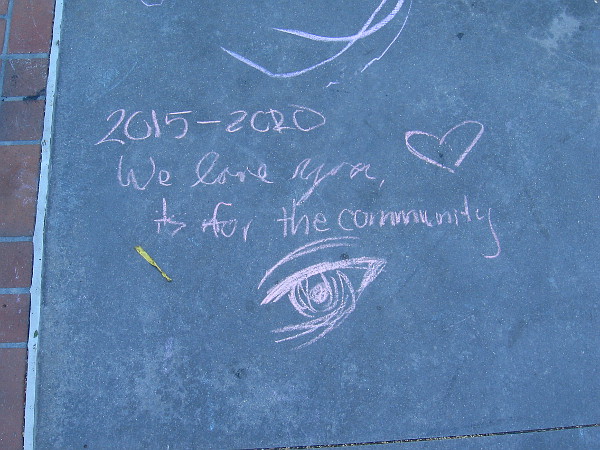 2015-2020
We love you,
ts for the community